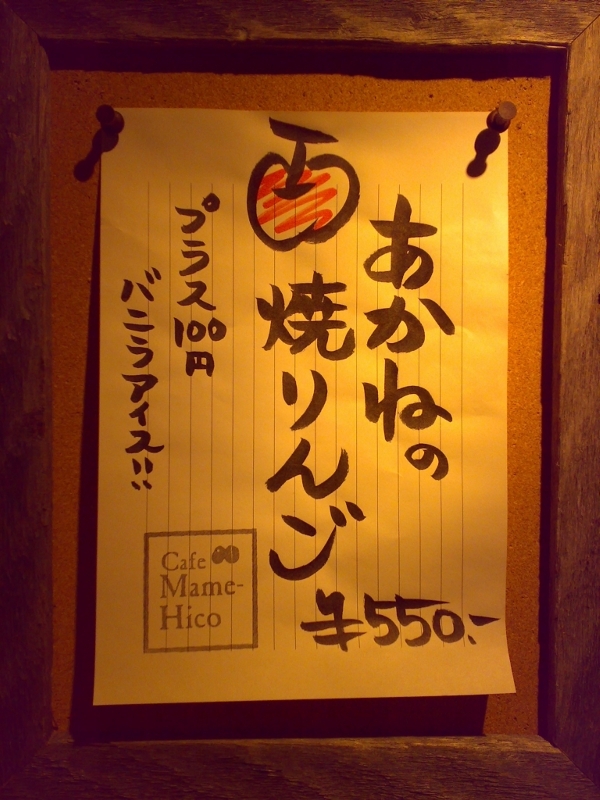 あかねの
焼りんご
¥550.-
プラス100円
バニラアイス!!
Cafe
Mame-
Hico